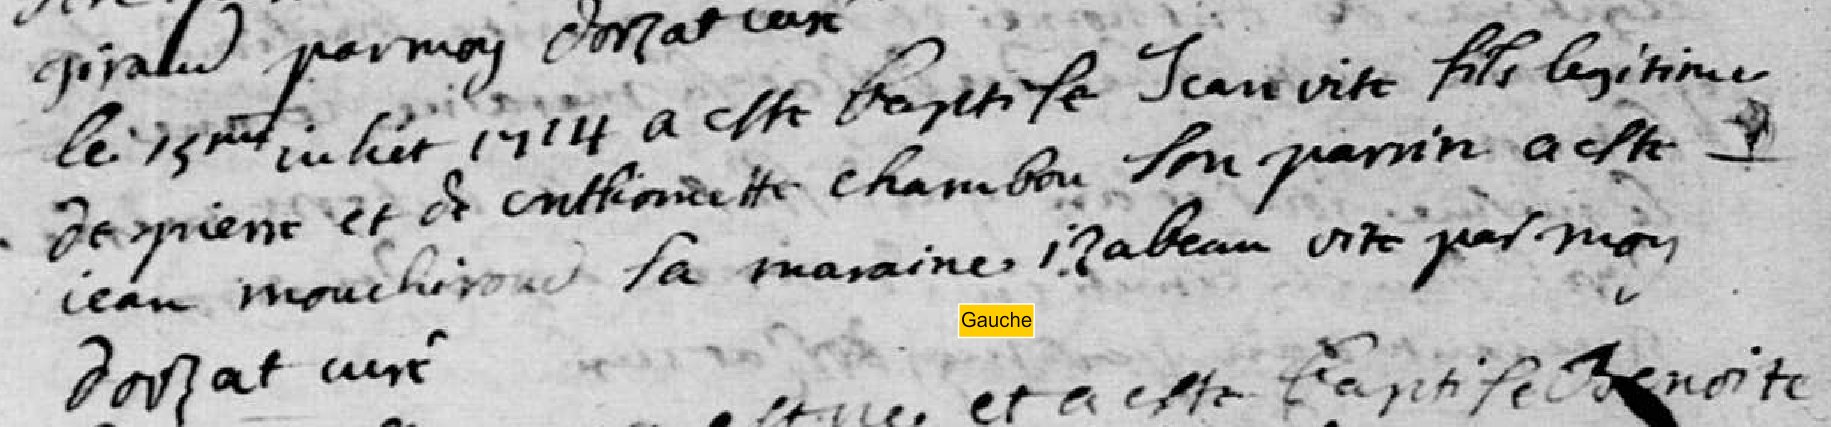 giraud par moy dorzat curé
le 15me iuliet 1714 a este baptise Jean vite fils legitime
de pierre et de enthionette chambou son parrin a este
jean mouchiroud sa maraine izabeau vite par moy
Gauche
dorzat curé
et a este baptise Benoite